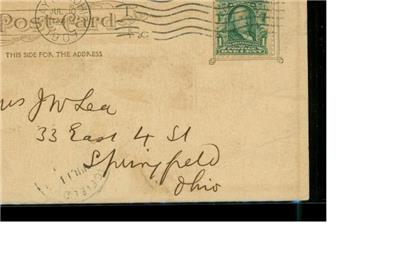 Post Card
THIS SIDE FOR THE ADDRESS
J W Lea
33 East 4 St
Springfield
Ohio